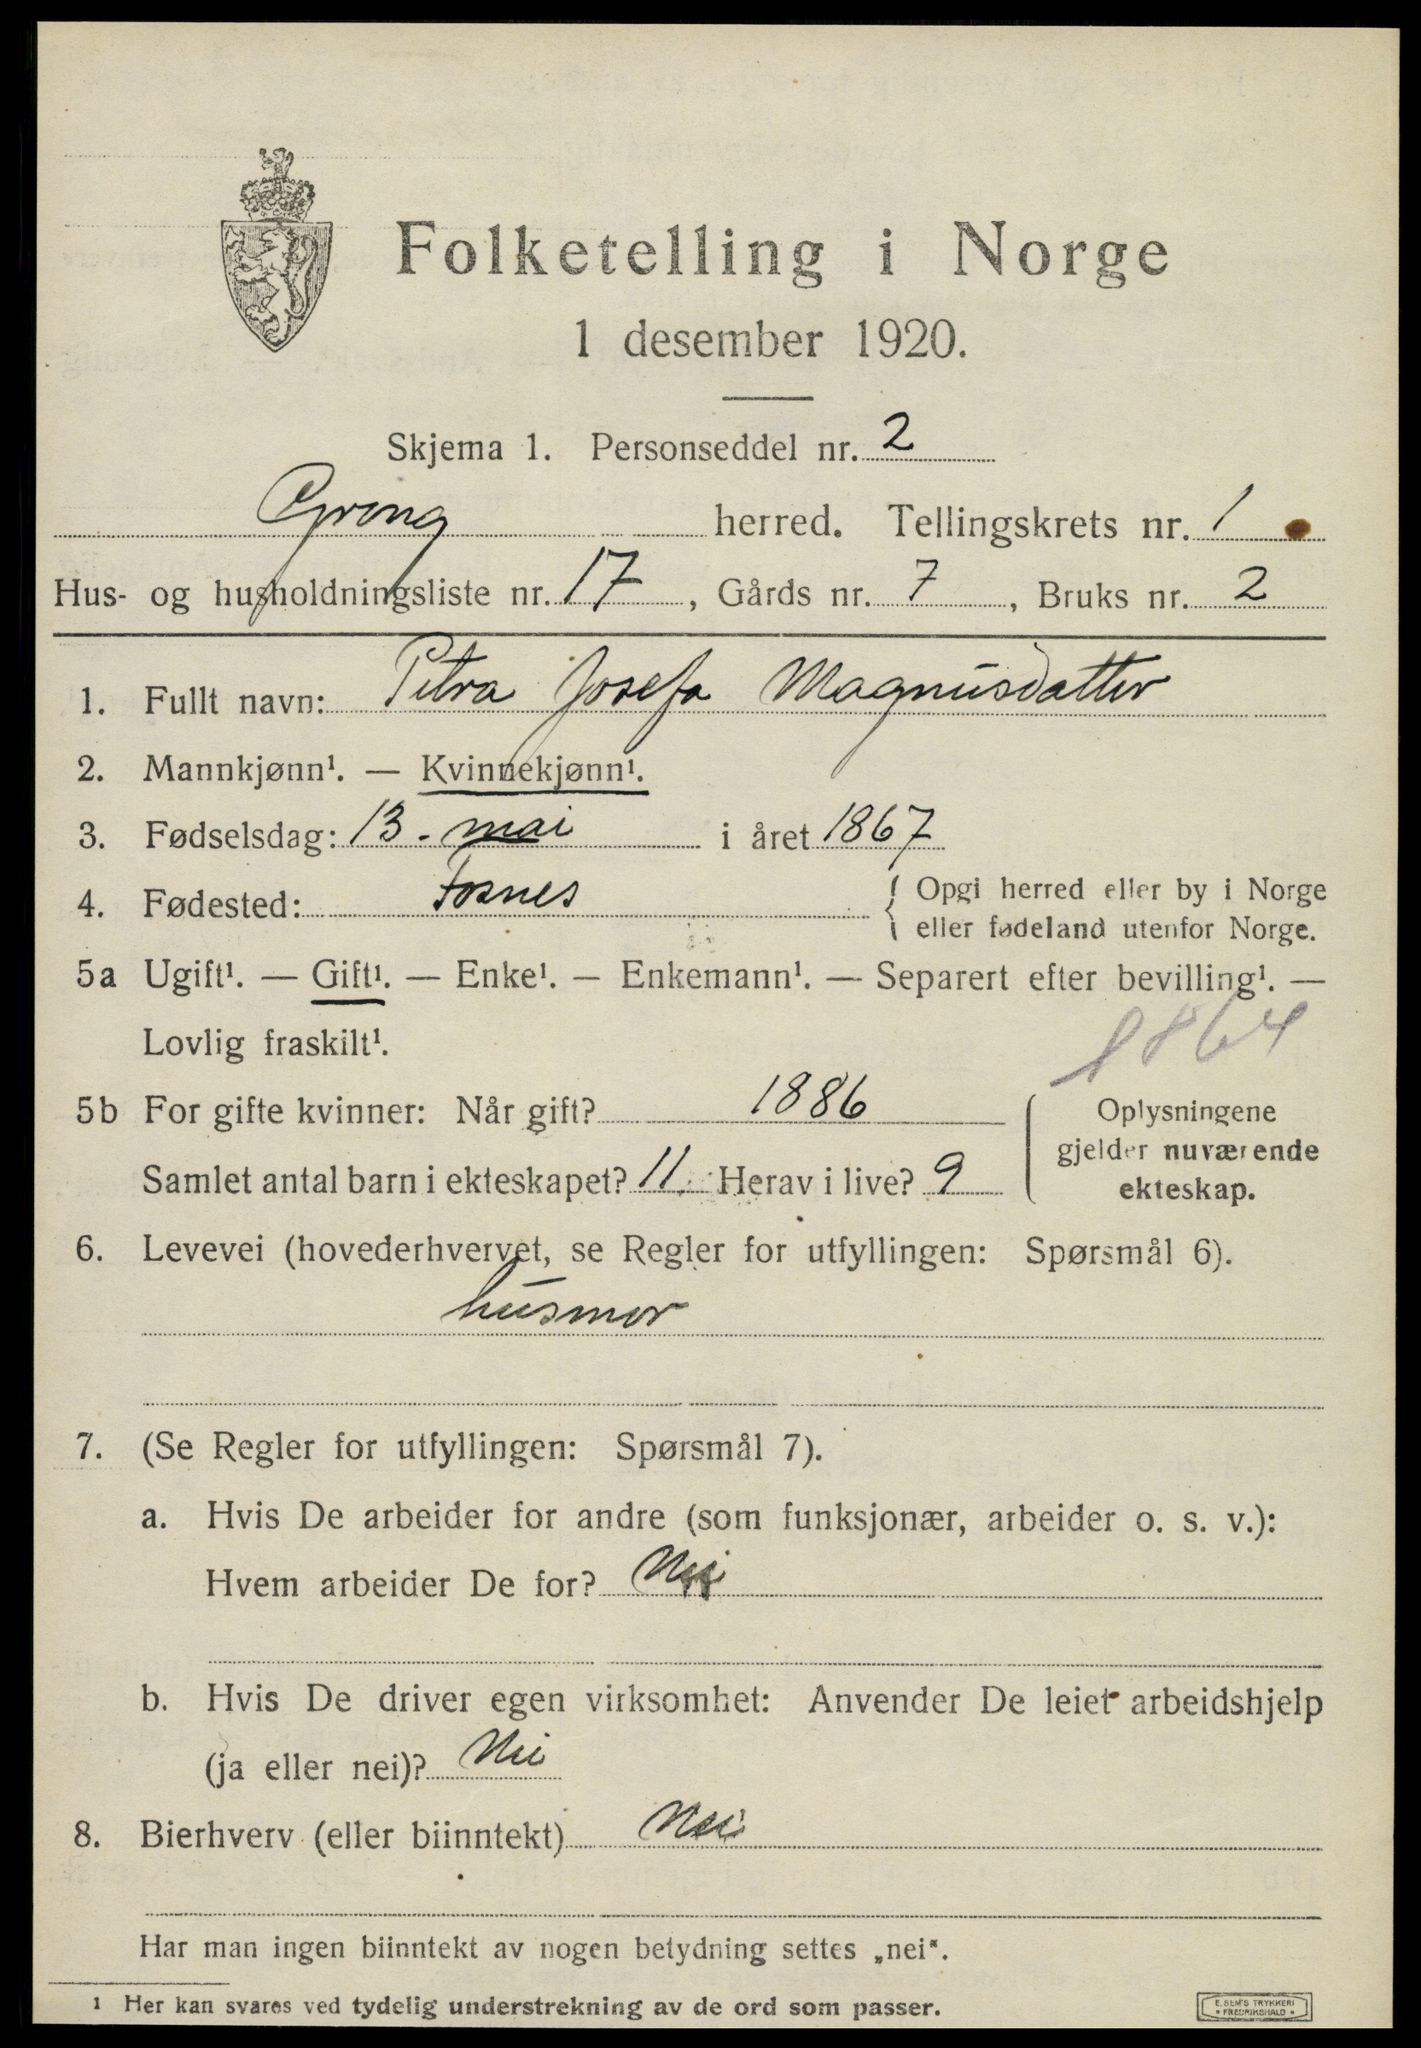 Folketelling i Norge
1 desember 1920.
Skjema 1. Personseddel nr. 2
Grong herred. Tellingskrets nr. 1
Hus- og husholdningsliste nr. 17, Gårds nr. 7, Bruks nr. 2
1. Fullt navn: Petra Josefa Magnusdatter
2. Mannkjønn¹. — Kvinnekjønn¹.
3. Fødselsdag: 13. mai i året 1867
4. Fødested: Fosnes { Opgi herred eller by i Norge
eller fødeland utenfor Norge.
5a Ugift¹. — Gift¹. — Enke¹. — Enkemann¹. — Separert efter bevilling¹. —
Lovlig fraskilt¹.
1864
5b For gifte kvinner: Når gift? 1886
Samlet antal barn i ekteskapet? 11. Herav i live? 9
{ Oplysningene
gjelder nuværende
ekteskap.
6. Levevei (hovederhvervet, se Regler for utfyllingen: Spørsmål 6).
husmor
7. (Se Regler for utfyllingen: Spørsmål 7).
a. Hvis De arbeider for andre (som funksjonær, arbeider o. s. v.):
Hvem arbeider De for? Nei
b. Hvis De driver egen virksomhet: Anvender De leiet arbeidshjelp
(ja eller nei)? Nei
8. Bierhverv (eller biinntekt) Nei
Har man ingen biinntekt av nogen betydning settes „nei“.
1 Her kan svares ved tydelig understrekning av de ord som passer.
E. SEM'S TRYKKERI
• FREDRIKSHALD •